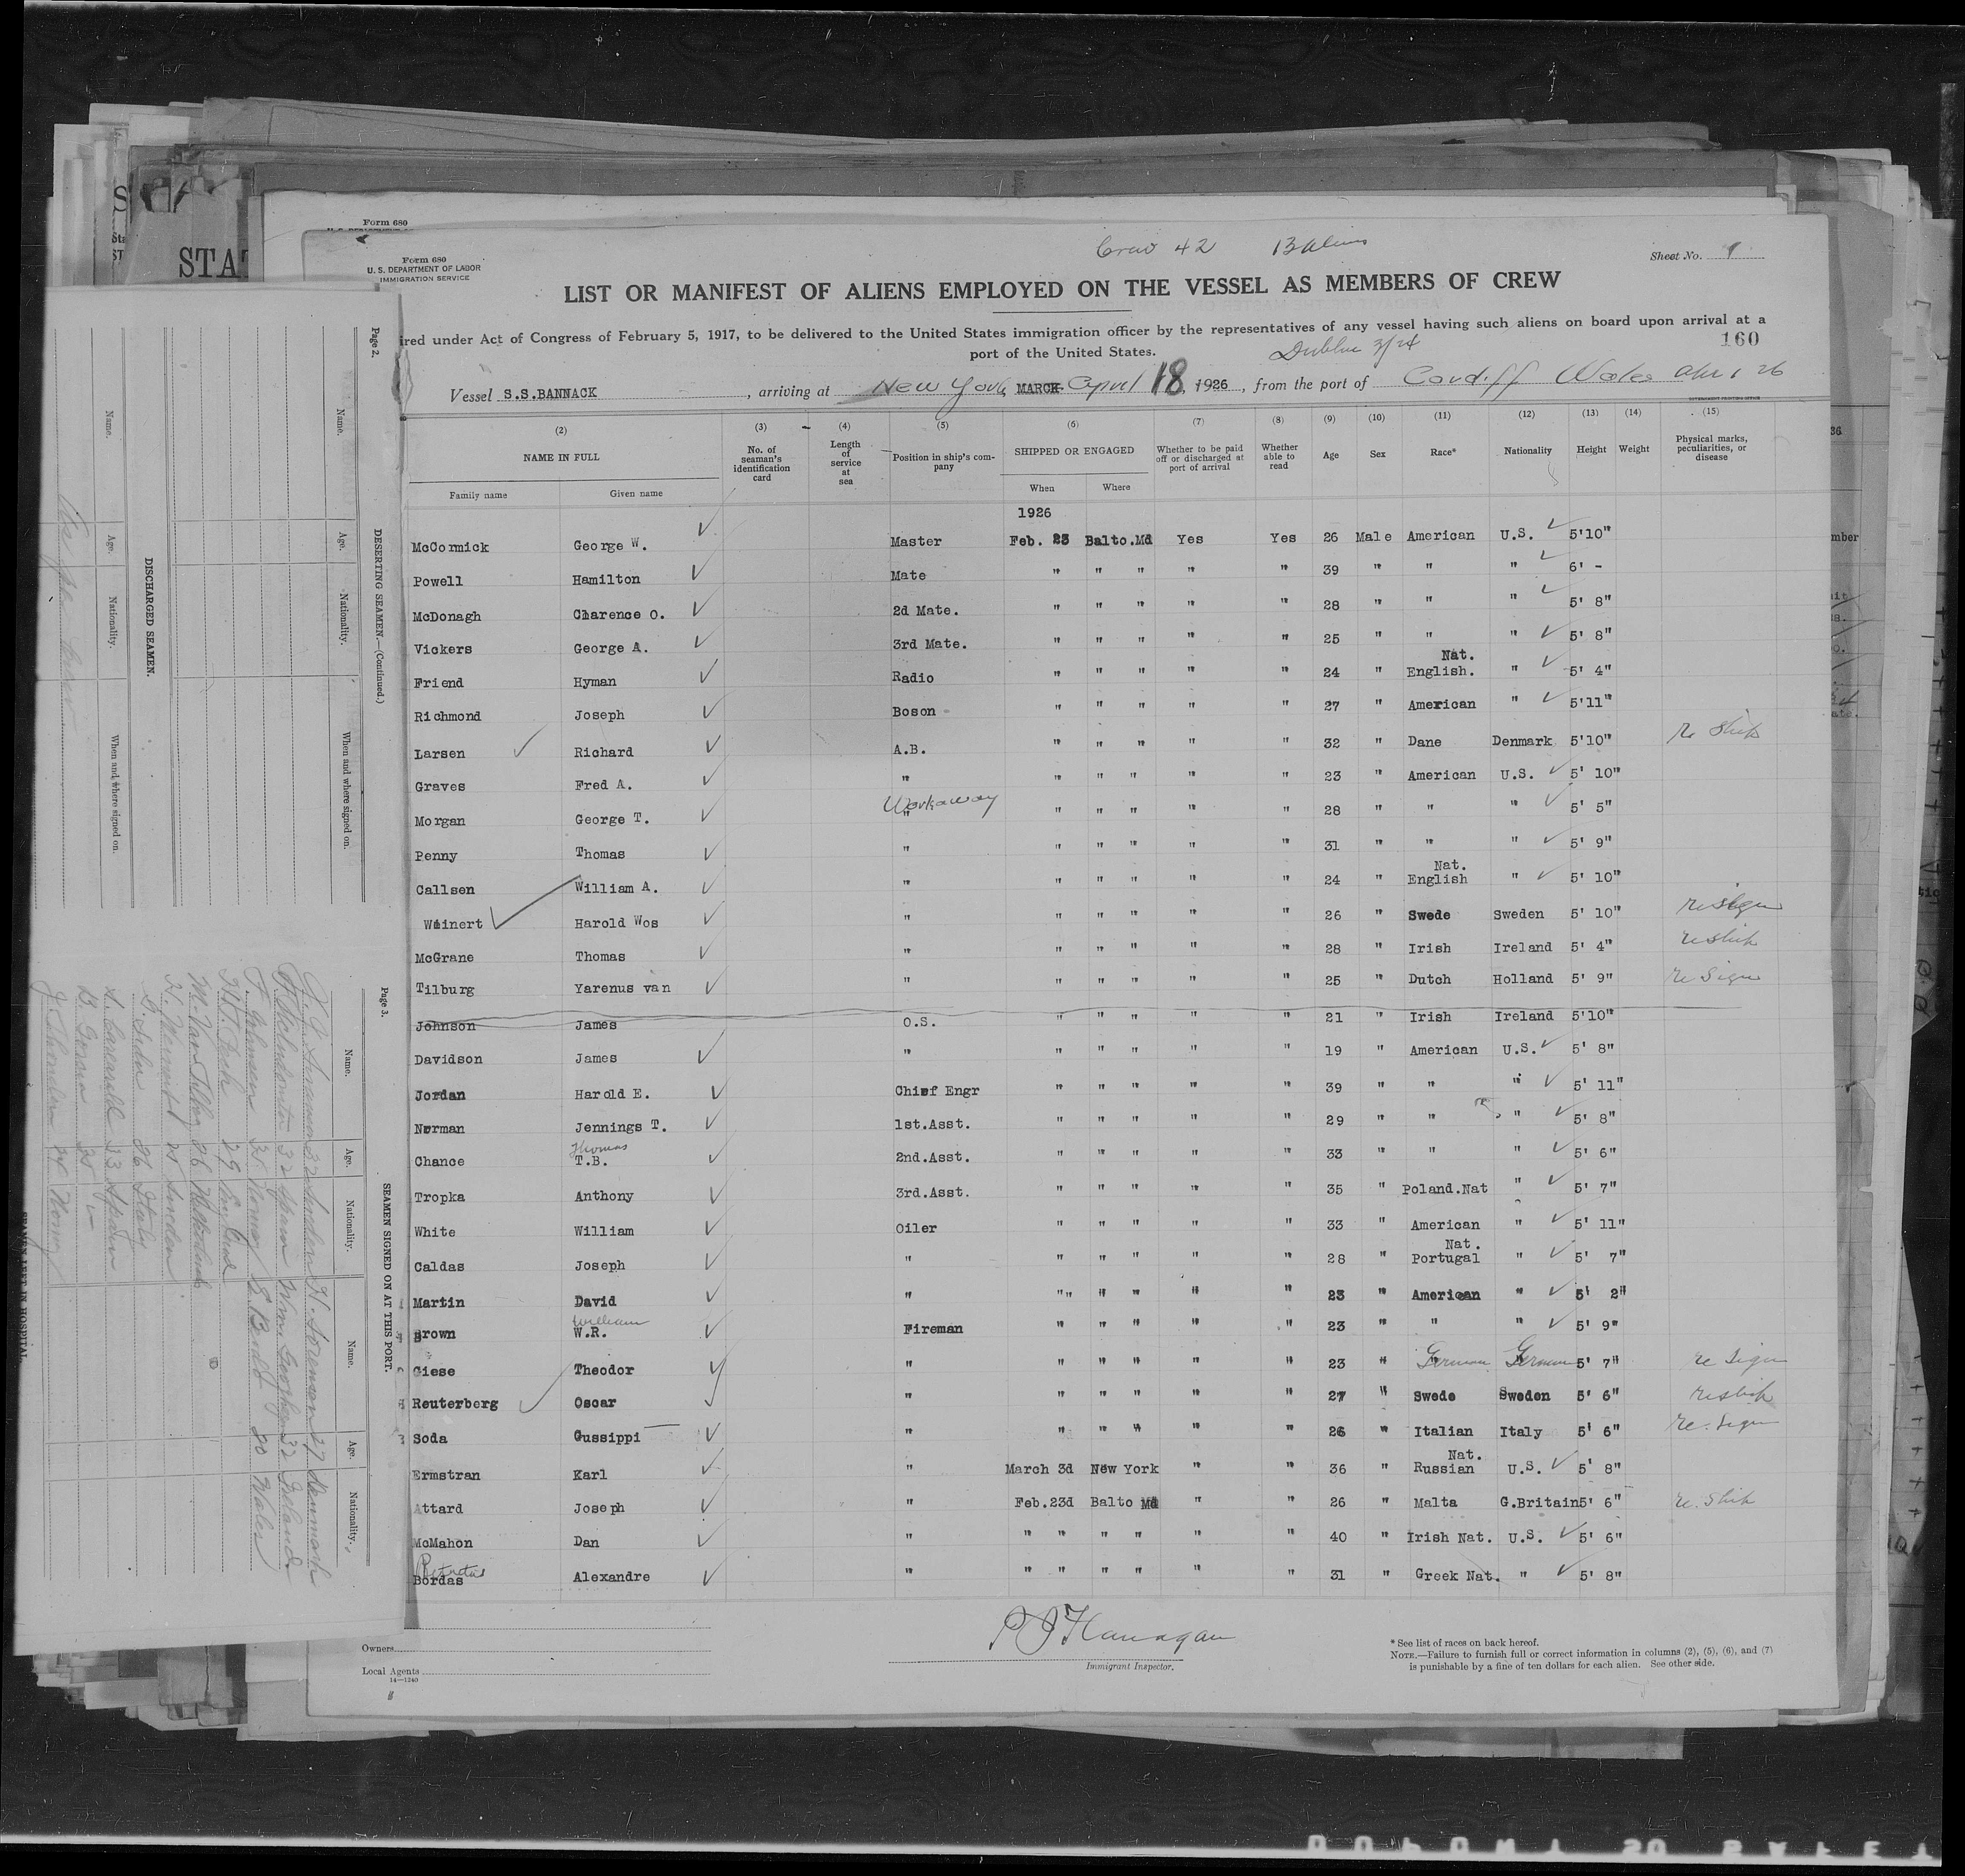 Form 680
Form 680
U. S. DEPARTMENT OF LABOR
IMMIGRATION SERVICE
STA
Crew 42
Sheet No. 1
LIST OR MANIFEST OF ALIENS EMPLOYED ON THE VESSEL AS MEMBERS OF CREW
ired under Act of Congress of February 5, 1917, to be delivered to the United States immigration officer by the representatives of any vessel having such aliens on board upon arrival at a
port of the United States.
160
Dublin 3/24
Vessel S.S.BANNACK, arriving at New York, MARCH April 18, 1926, from the port of Cardiff Wales Apr 1 26
GOVERNMENT PRINTING OFFICE
(2) (3) (4) (5) (6) (7) (8) (9) (10) (11) (12) (13) (14) (15)
NAME IN FULL No. of seaman's identification card Length of service at sea Position in ship's company SHIPPED OR ENGAGED Whether to be paid off or discharged at port of arrival Whether able to read Age Sex Race* Nationality Height Weight Physical marks, peculiarities, or disease
Family name Given name When Where
1926
McCormick George W. Master Feb. 23 Balto.Md Yes Yes 26 Male American U.S. 5'10"
Powell Hamilton Mate " " " " " 39 " " " 6' -
McDonagh Clarence O. 2d Mate. " " " " " 28 " " " 5' 8"
Vickers George A. 3rd Mate. " " " " " 25 " " " 5' 8"
Friend Hyman Radio " " " " " 24 " Nat. English. " 5' 4"
Richmond Joseph Boson " " " " " 27 " American " 5'11"
Larsen Richard A.B. " " " " " 32 " Dane Denmark 5'10" Re Ship
Graves Fred A. " " " " " " 23 " American U.S. 5' 10"
Morgan George T. Workaway " " " " " " 28 " " " 5' 5"
Penny Thomas " " " " " " 31 " " " 5' 9"
Callsen William A. " " " " " " 24 " Nat. English " 5' 10"
Weinert Harold Wos " " " " " " 26 " Swede Sweden 5' 10" resign
McGrane Thomas " " " " " " 28 " Irish Ireland 5' 4" reship
Tilburg Yarenus van " " " " " " 25 " Dutch Holland 5' 9" re Sign
Johnson James O.S. " " " " " 21 " Irish Ireland 5'10"
Davidson James " " " " " " 19 " American U.S. 5' 8"
Jordan Harold E. Chief Engr " " " " " 39 " " " 5' 11"
Norman Jennings T. 1st.Asst. " " " " " 29 " " " 5' 8"
Chance Thomas T.B. 2nd.Asst. " " " " " 33 " " " 5' 6"
Tropka Anthony 3rd.Asst. " " " " " 35 " Poland.Nat " 5' 7"
White William Oiler " " " " " 33 " American " 5' 11"
Caldas Joseph " " " " " " 28 " Nat. Portugal " 5' 7"
Martin David " "" " " " " 23 " American " 5' 2"
Brown William W.R. Fireman " " " " " 23 " " " 5' 9"
Giese Theodor " " " " " " 23 " German German 5' 7" re Sign
Reuterberg Oscar " " " " " " 27 " Swede Sweden 5' 6" reship
Soda Gussippi " " " " " " 26 " Italian Italy 5' 6" re. Sign
Ermstran Karl " March 3d New York " " 36 " Nat. Russian U.S. 5' 8"
Attard Joseph " Feb.23d Balto Md " " 26 " Malta G.Britain 5' 6" re. Ship
McMahon Dan " " " " " " " 40 " Irish Nat. U.S. 5' 6"
Bordas Alexandre " " " " " " " 31 " Greek Nat. " 5' 8"
Owners
Local Agents
14—1240
P J Flanagan
Immigrant Inspector.
* See list of races on back hereof.
NOTE.—Failure to furnish full or correct information in columns (2), (5), (6), and (7)
is punishable by a fine of ten dollars for each alien. See other side.
Page 2.
DESERTING SEAMEN.—(Continued.)
Name. Age. Nationality. When and where signed on.
DISCHARGED SEAMEN.
Name. Age. Nationality. When and where signed on.
Page 3.
SEAMEN SIGNED ON AT THIS PORT.
Name. Age. Nationality. Name. Age. Nationality.
32 Sweden H. Sorenson 27 Denmark
32 Spain Wm. Geoghegan 32 Ireland
F. Johnsen 25 Norway 20 Wales
29
M. Van Tilburg 26
H. Weinert 25 Sweden
G. Soda 26 Italy
33 Spain
25
24 Norway
SEAMEN LEFT IN HOSPITAL